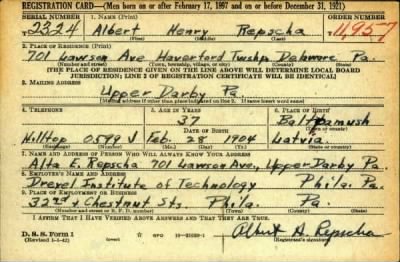 REGISTRATION CARD—(Men born on or after February 17, 1897 and on or before December 31, 1921)
SERIAL NUMBER 1. NAME (Print) ORDER NUMBER
T 2324 Albert Henry Repscha 11,957
(First) (Middle) (Last)
2. PLACE OF RESIDENCE (Print)
701 Lawson Ave Haverford Twshp Delaware Pa.
(Number and street) (Town, township, village, or city) (County) (State)
[THE PLACE OF RESIDENCE GIVEN ON THE LINE ABOVE WILL DETERMINE LOCAL BOARD
JURISDICTION; LINE 2 OF REGISTRATION CERTIFICATE WILL BE IDENTICAL]
3. MAILING ADDRESS
Upper Darby Pa.
[Mailing address if other than place indicated on line 2. If same insert word same]
4. TELEPHONE 5. AGE IN YEARS 6. PLACE OF BIRTH
37
DATE OF BIRTH (Town or county)
Hilltop 0599 J Feb. 28 1904 Latvia
(Exchange) (Number) (Mo.) (Day) (Yr.) (State or country)
7. NAME AND ADDRESS OF PERSON WHO WILL ALWAYS KNOW YOUR ADDRESS
Alta E. Repscha 701 Lawson Ave., Upper Darby Pa.
8. EMPLOYER'S NAME AND ADDRESS
Drexel Institute of Technology Phila. Pa.
9. PLACE OF EMPLOYMENT OR BUSINESS
32nd & Chestnut Sts. Phila. Pa.
(Number and street or R. F. D. number) (Town) (County) (State)
I AFFIRM THAT I HAVE VERIFIED ABOVE ANSWERS AND THAT THEY ARE TRUE.
D. S. S. Form 1
(Revised 1-1-42) (over) GPO Albert H. Repscha
(Registrant's signature)